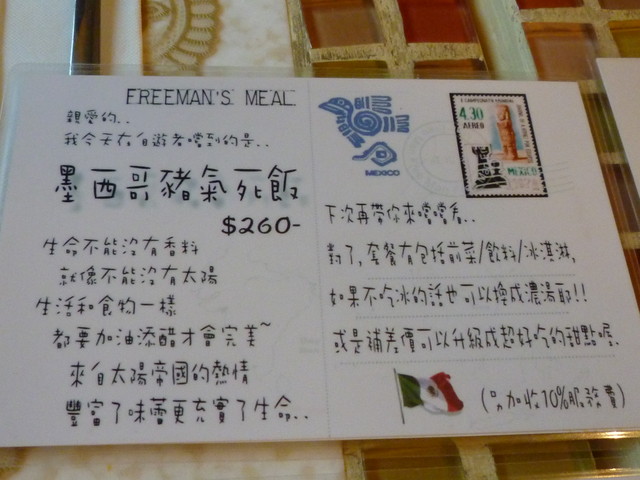 FREEMAN'S MEAL
親愛的..
我今天在自遊者嚐到的是..
墨西哥豬氣死飯
$260-
生命不能沒有香料
就像不能沒有太陽
生活和食物一樣
都要加油添醋才會完美~
來自太陽帝國的熱情
豐富了味蕾更充實了生命..
MEXICO
4.30
AEREO
MEXICO
下次再帶你來嚐嚐看..
對了,套餐有包括前菜/飲料/冰淇淋,
如果不吃冰的話也可以換成濃湯耶!!
或是補差價可以升級成超好吃的甜點喔.
(另加收10%服務費)